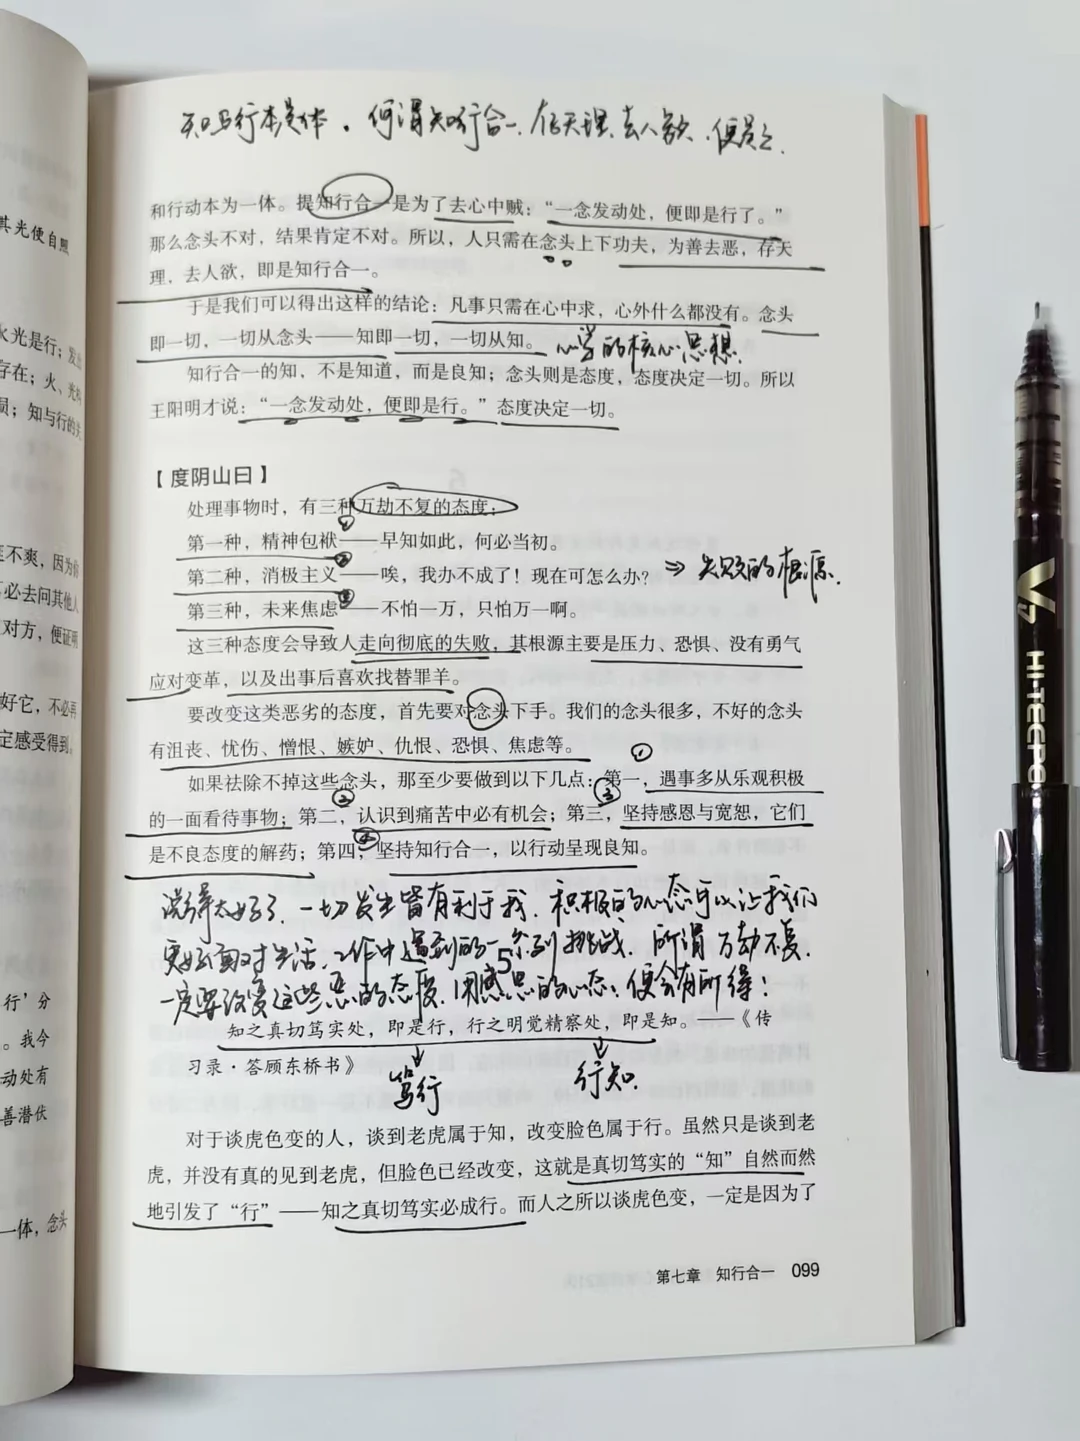 知与行本是一体。何谓知行合一、存天理、去人欲、便是之.
和行动本为一体。提知行合一是为了去心中贼：“一念发动处，便即是行了。”
那么念头不对，结果肯定不对。所以，人只需在念头上下功夫，为善去恶，存天
理，去人欲，即是知行合一。
于是我们可以得出这样的结论：凡事只需在心中求，心外什么都没有。念头
即一切，一切从念头——知即一切，一切从知。 心学的核心思想.
知行合一的知，不是知道，而是良知；念头则是态度，态度决定一切。所以
王阳明才说：“一念发动处，便即是行。”态度决定一切。
【度阴山曰】
处理事物时，有三种万劫不复的态度：
①
第一种，精神包袱——早知如此，何必当初。
②
第二种，消极主义——唉，我办不成了！现在可怎么办？ ⇒ 失败的根源.
③
第三种，未来焦虑——不怕一万，只怕万一啊。
这三种态度会导致人走向彻底的失败，其根源主要是压力、恐惧、没有勇气
应对变革，以及出事后喜欢找替罪羊。
要改变这类恶劣的态度，首先要对念头下手。我们的念头很多，不好的念头
有沮丧、忧伤、憎恨、嫉妒、仇恨、恐惧、焦虑等。
①
如果祛除不掉这些念头，那至少要做到以下几点：第一，遇事多从乐观积极
② ③
的一面看待事物；第二，认识到痛苦中必有机会；第三，坚持感恩与宽恕，它们
④
是不良态度的解药；第四，坚持知行合一，以行动呈现良知。
说得太好了、一切发生皆有利于我、积极的心态可以让我们
更好面对生活、工作中遇到的一系列挑战、所谓万劫不复、
一定要改变这些恶的态度、用感恩的心态、便会有所得！
知之真切笃实处，即是行，行之明觉精察处，即是知。——《传
习录·答顾东桥书》
笃行 行知.
对于谈虎色变的人，谈到老虎属于知，改变脸色属于行。虽然只是谈到老
虎，并没有真的见到老虎，但脸色已经改变，这就是真切笃实的“知”自然而然
地引发了“行”——知之真切笃实必成行。而人之所以谈虎色变，一定是因为了
第七章 知行合一 099
其光便自照
火光是行；发出
存在；火、光料
损；知与行的关
毫不爽，因为你
必去问其他人
对方，便证明
好它，不必再
定感受得到。
行’分
。我今
动处有
善潜伏
一体，念头
V7
HI-TECPO